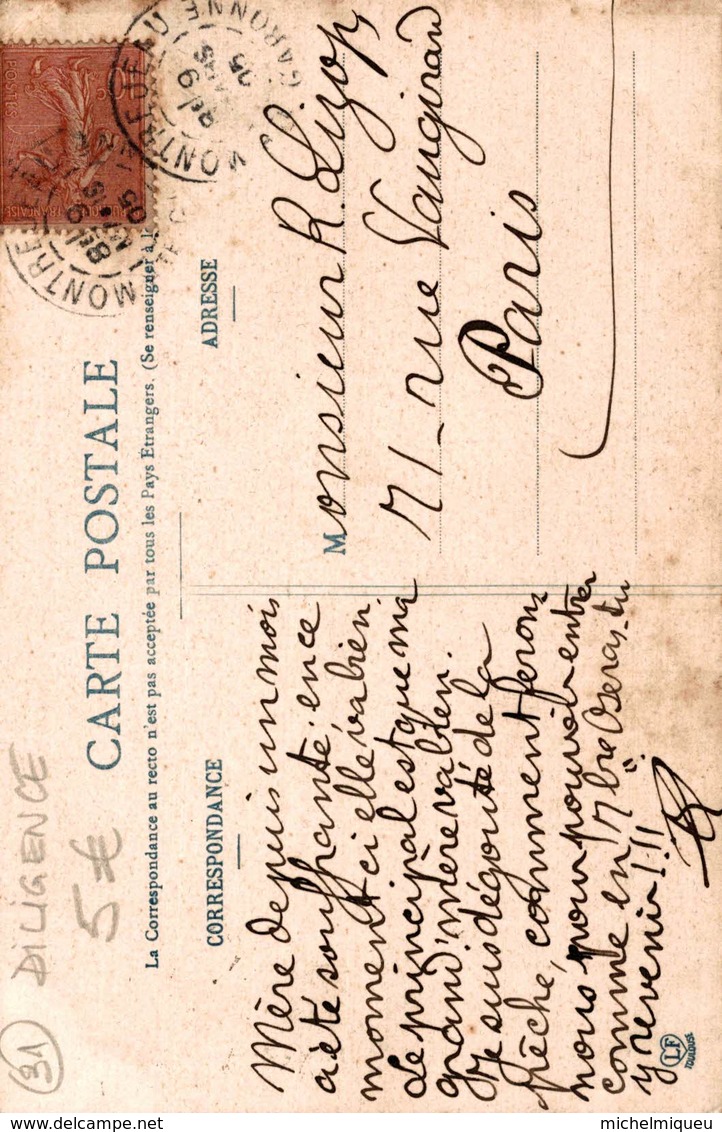 31
DILIGENCE
5€
CARTE POSTALE
La Correspondance au recto n'est pas acceptée par tous les Pays Etrangers. (Se renseigner à la
CORRESPONDANCE
Mère depuis un mois
a été souffrante. en ce
moment ci elle va bien.
Le principal est que ma
grand'mère va bien.
Je suis dégouté de la
pêche, comment ferons
nous pour pouvoir entrer
comme en 7bre Oseras-tu
y revenir!!!
ADRESSE
Monsieur R. Lizop
71 - rue Vaugirard
Paris
MONTREJEAU
GARONNE
9
MARS
05
MONTREJEAU
8
MARS
05
POSTES
FRANÇAISE
LF
TOULOUSE
michelmiqueu